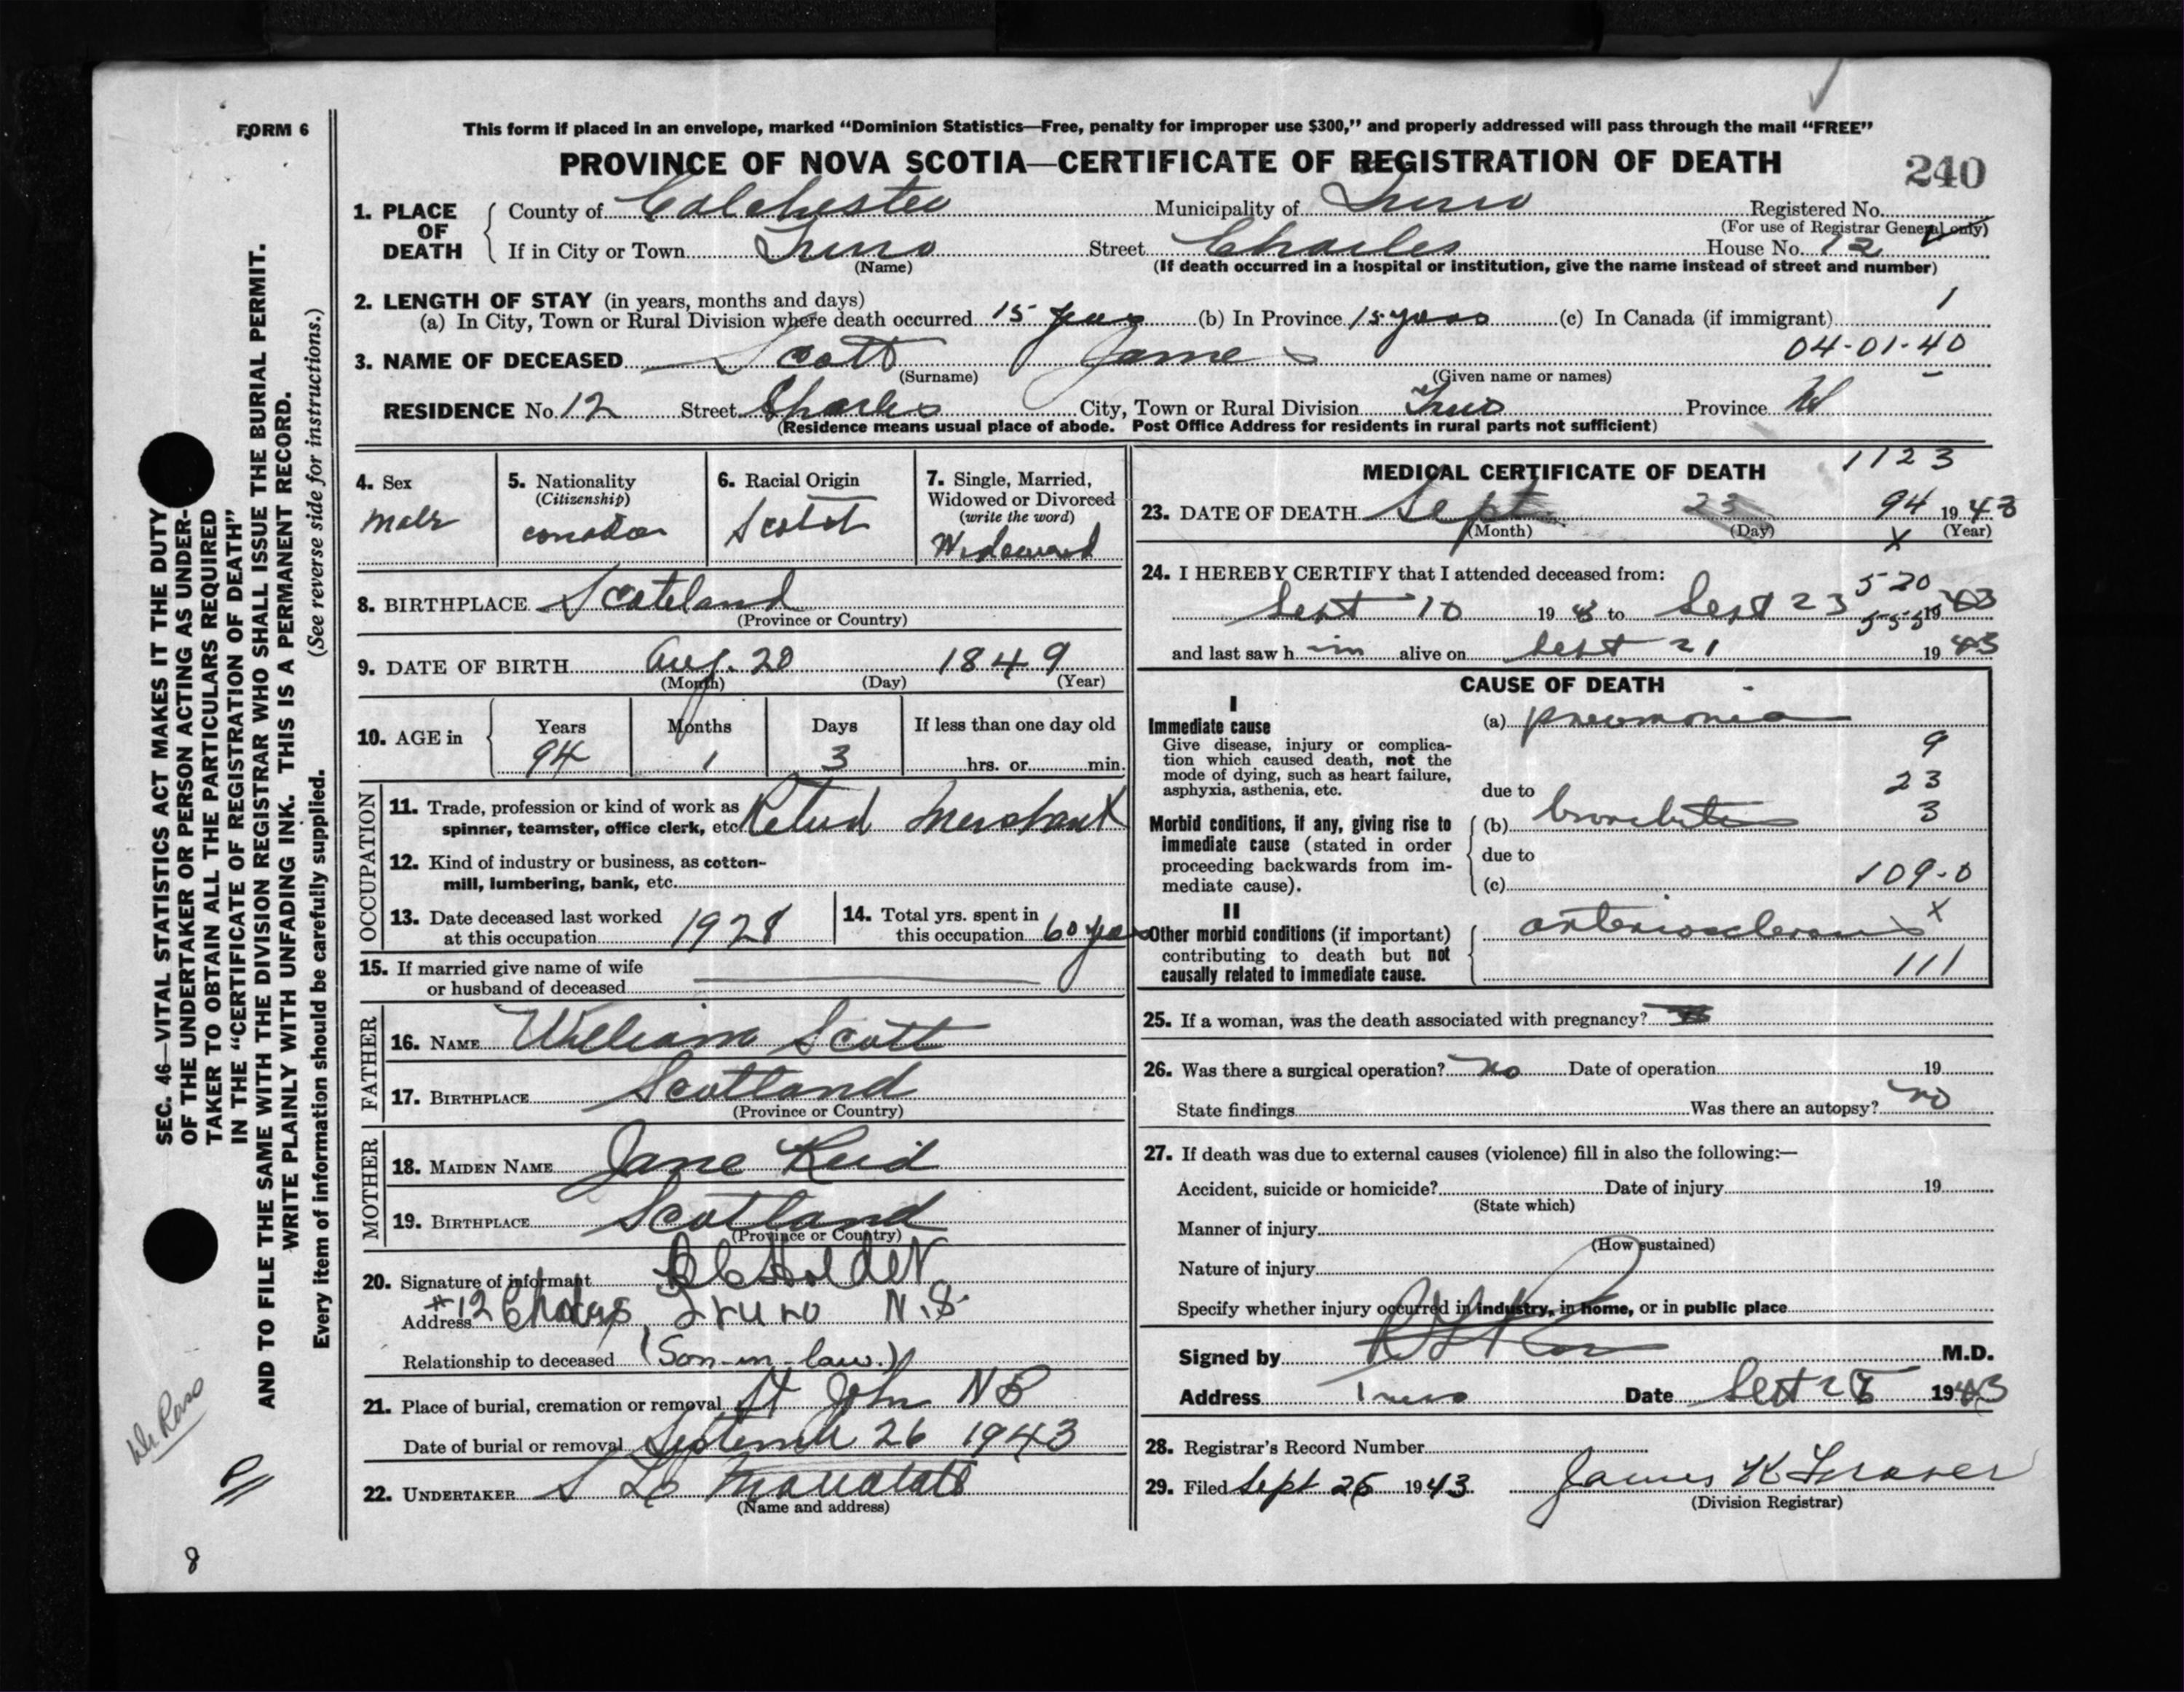 FORM 6
This form if placed in an envelope, marked “Dominion Statistics—Free, penalty for improper use $300,” and properly addressed will pass through the mail “FREE”
PROVINCE OF NOVA SCOTIA—CERTIFICATE OF REGISTRATION OF DEATH
240
1. PLACE OF DEATH
County of Colchester Municipality of Truro Registered No.
(For use of Registrar General only)
If in City or Town Truro Street Charles House No. 12
(Name) (If death occurred in a hospital or institution, give the name instead of street and number)
2. LENGTH OF STAY (in years, months and days) 1
(a) In City, Town or Rural Division where death occurred 15 years (b) In Province 15 years (c) In Canada (if immigrant)
3. NAME OF DECEASED Scott James 04-01-40
(Surname) (Given name or names)
RESIDENCE No. 12 Street Charles City, Town or Rural Division Truro Province
(Residence means usual place of abode. Post Office Address for residents in rural parts not sufficient)
4. Sex
Male
5. Nationality
(Citizenship)
6. Racial Origin
Scotch
7. Single, Married,
Widowed or Divorced
(write the word)
8. BIRTHPLACE Scotland
(Province or Country)
9. DATE OF BIRTH Aug. 20 1849
(Month) (Day) (Year)
10. AGE in
Years Months Days If less than one day old
94 1 3 hrs. or min.
OCCUPATION
11. Trade, profession or kind of work as
spinner, teamster, office clerk, etc. Retired Merchant
12. Kind of industry or business, as cotton-
mill, lumbering, bank, etc.
13. Date deceased last worked
at this occupation 1928
14. Total yrs. spent in
this occupation 60 years
15. If married give name of wife
or husband of deceased
FATHER
16. NAME William Scott
17. BIRTHPLACE Scotland
(Province or Country)
MOTHER
18. MAIDEN NAME Jane Reid
19. BIRTHPLACE Scotland
(Province or Country)
20. Signature of informant Holder
Address #12 Charles, Truro N.S.
Relationship to deceased (Son-in-law.)
21. Place of burial, cremation or removal St John NB
Date of burial or removal September 26 1943
22. UNDERTAKER
(Name and address)
MEDICAL CERTIFICATE OF DEATH 1123
23. DATE OF DEATH Sept. 23 94 1943
(Month) (Day) X (Year)
24. I HEREBY CERTIFY that I attended deceased from:
520
Sept 10 19 43 to Sept 23 1943
555
and last saw h im alive on Sept 21 1943
CAUSE OF DEATH
I
Immediate cause
Give disease, injury or complica-
tion which caused death, not the
mode of dying, such as heart failure,
asphyxia, asthenia, etc.
(a) pneumonia
9
23
due to
Morbid conditions, if any, giving rise to
immediate cause (stated in order
proceeding backwards from im-
mediate cause).
(b) bronchitis 3
due to
(c) 109-0
II
Other morbid conditions (if important)
contributing to death but not
causally related to immediate cause.
arteriosclerosis X
111
25. If a woman, was the death associated with pregnancy?
26. Was there a surgical operation? no Date of operation 19
State findings Was there an autopsy? no
27. If death was due to external causes (violence) fill in also the following:—
Accident, suicide or homicide? Date of injury 19
(State which)
Manner of injury
(How sustained)
Nature of injury
Specify whether injury occurred in industry, in home, or in public place
Signed by M.D.
Address Truro Date Sept 1943
28. Registrar's Record Number
29. Filed Sept 26 1943 James K Fraser
(Division Registrar)
SEC. 46—VITAL STATISTICS ACT MAKES IT THE DUTY
OF THE UNDERTAKER OR PERSON ACTING AS UNDER-
TAKER TO OBTAIN ALL THE PARTICULARS REQUIRED
IN THE “CERTIFICATE OF REGISTRATION OF DEATH”
AND TO FILE THE SAME WITH THE DIVISION REGISTRAR WHO SHALL ISSUE THE BURIAL PERMIT.
WRITE PLAINLY WITH UNFADING INK. THIS IS A PERMANENT RECORD.
Every item of information should be carefully supplied. (See reverse side for instructions.)
8